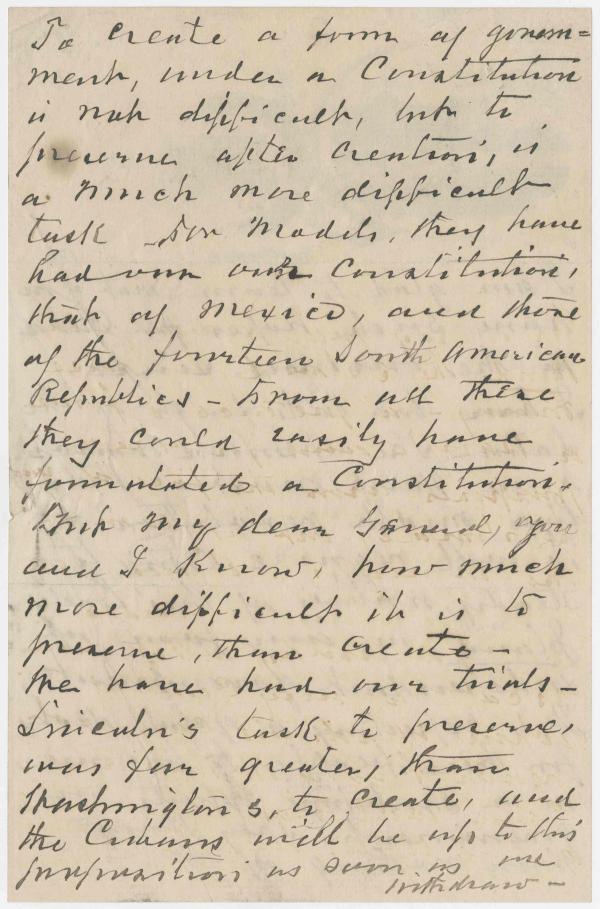 To create a form of govern=
ment, under a Constitution
is not difficult, but to
preserve after creation, is
a much more difficult
task - For Models, they have
had our own Constitution,
that of Mexico, and those
of the fourteen South American
Republics - From all these
they could easily have
formulated a Constitution.
But my dear General, you
and I know, how much
more difficult it is to
preserve, than create -
We have had our trials -
Lincoln's task to preserve,
was far greater, than
Washington's, to create, and
the Cubans will be up to this
proposition as soon as we
withdraw -